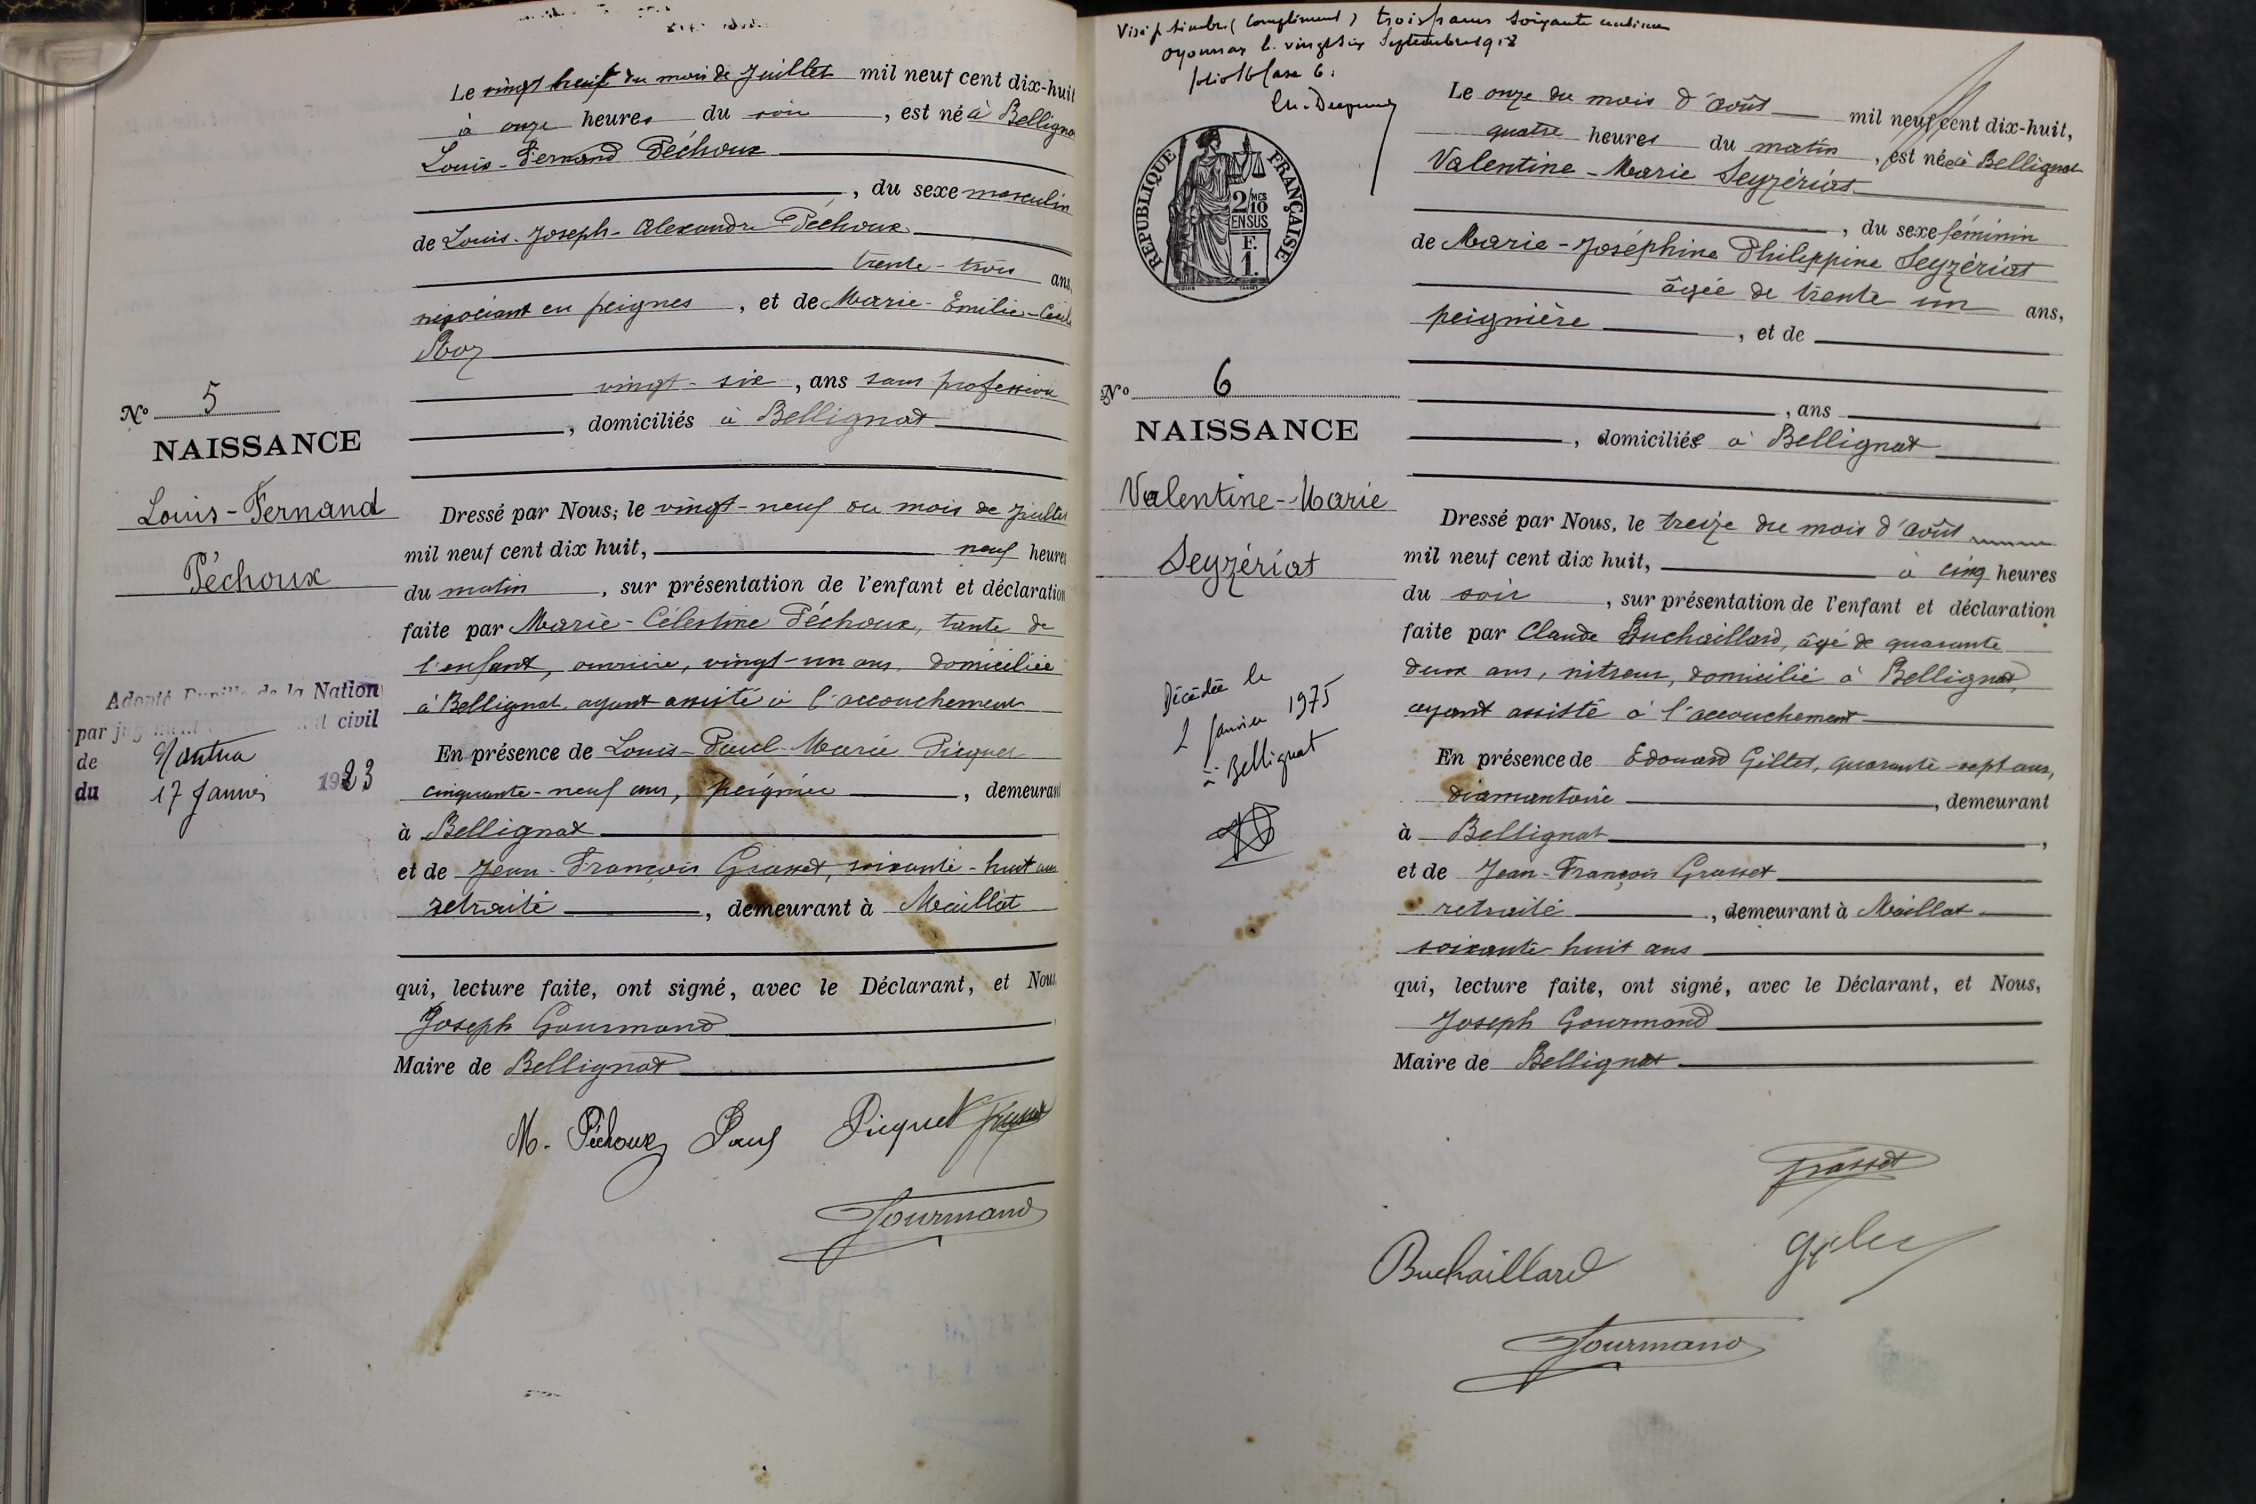 Le vingt huit du mois de Juillet mil neuf cent dix-huit
à onze heures du soir, est né à Bellignat
Louis-Fernand Péchoux
, du sexe masculin
de Louis-Joseph-Alexandre Péchoux
trente-trois ans,
négociant en peignes, et de Marie-Emilie-Cécile
Roz
vingt-six, ans sans profession
, domiciliés à Bellignat
No 5
NAISSANCE
Louis-Fernand
Péchoux
Adopté Pupille de la Nation
par jugement civil
de Nantua
du 17 Janvier 1923
Dressé par Nous; le vingt-neuf du mois de Juillet
mil neuf cent dix huit, neuf heures
du matin, sur présentation de l'enfant et déclaration
faite par Marie-Célestine Péchoux, tante de
l'enfant, ouvrière, vingt-un ans, domiciliée
à Bellignat, ayant assisté à l'accouchement
En présence de Louis-Paul-Marie Picquet
cinquante-neuf ans, peignier, demeurant
à Bellignat
et de Jean-François Grasset, soixante-huit ans
retraité, demeurant à Maillat
qui, lecture faite, ont signé, avec le Déclarant, et Nous
Joseph Gourmand
Maire de Bellignat
M. Péchoux Paul Picquet Grasset
Gourmand
Visé p timbre (Complément) trois francs soixante centimes
Oyonnax le vingt six Septembre 1918
folio 16 case 6.
RÉPUBLIQUE FRANÇAISE
2/10 MES
EN SUS
F.
1.
Le onze du mois d'août mil neuf cent dix-huit,
quatre heures du matin, est née à Bellignat
Valentine-Marie Seyzériat
, du sexe féminin
de Marie-Joséphine Philippine Seyzériat
âgée de trente un ans,
peignière, et de
, ans
, domiciliée à Bellignat
No 6
NAISSANCE
Valentine-Marie
Seyzériat
Décédée le
2 Janvier 1975
à Bellignat
Dressé par Nous, le treize du mois d'août
mil neuf cent dix huit, à cinq heures
du soir, sur présentation de l'enfant et déclaration
faite par Claude Buchaillard, âgé de quarante
deux ans, nitreur, domicilié à Bellignat,
ayant assisté à l'accouchement
En présence de Edouard Gillet, quarante-sept ans,
diamantaire, demeurant
à Bellignat,
et de Jean-François Grasset
retraité, demeurant à Maillat
soixante-huit ans
qui, lecture faite, ont signé, avec le Déclarant, et Nous,
Joseph Gourmand
Maire de Bellignat
Grasset
Buchaillard
Gourmand